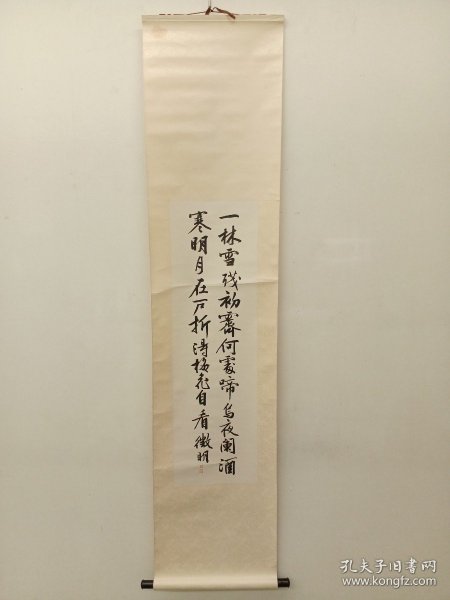 一林雪残初霽何處啼烏夜闌酒
寒明月在戶折得梅花自看徵明
孔夫子旧书网
www.kongfz.com